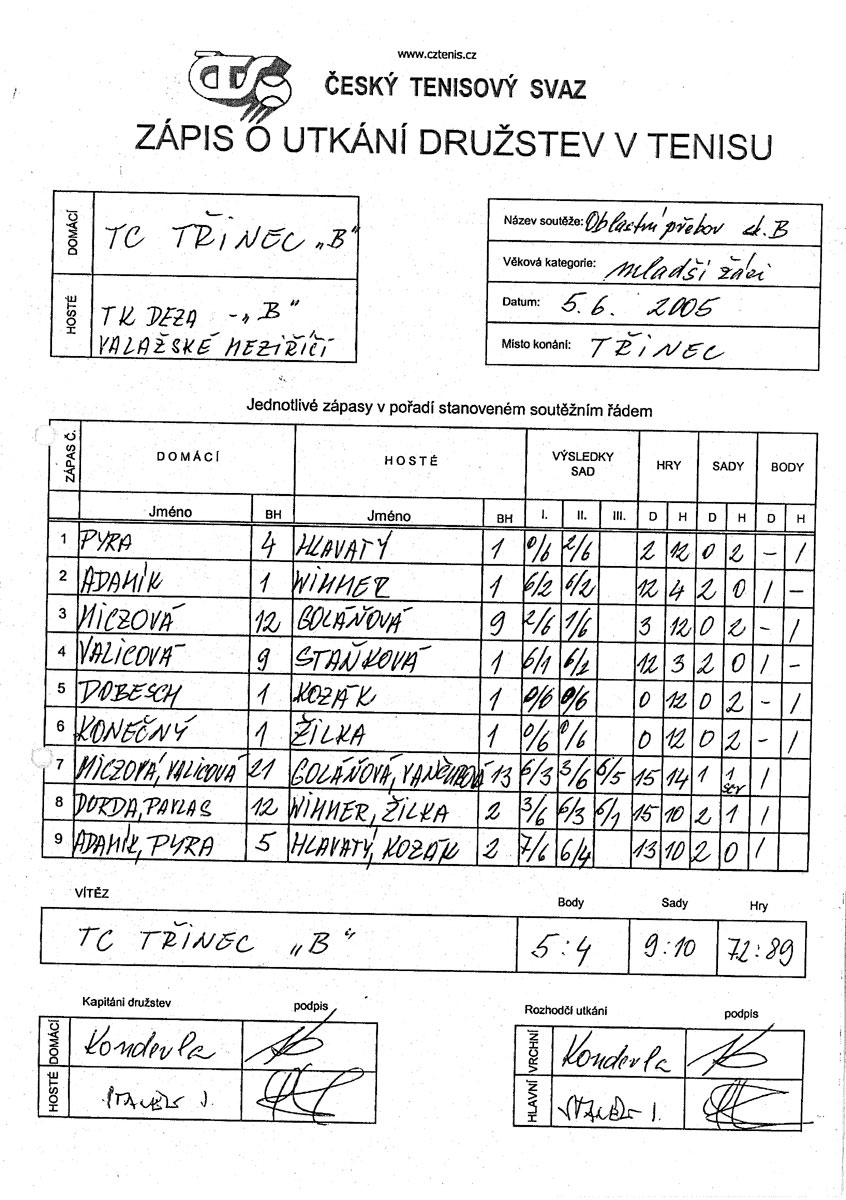 www.cztenis.cz
ČTS
ČESKÝ TENISOVÝ SVAZ
ZÁPIS O UTKÁNÍ DRUŽSTEV V TENISU
DOMÁCÍ TC TŘINEC „B"
HOSTÉ TK DEZA - „B"
VALAŽSKÉ MEZIŘÍČÍ
Název soutěže: Oblastní přebor sk. B
Věková kategorie: mladší žáci
Datum: 5. 6. 2005
Místo konání: TŘINEC
Jednotlivé zápasy v pořadí stanoveném soutěžním řádem
ZÁPAS Č. DOMÁCÍ HOSTÉ VÝSLEDKY SAD HRY SADY BODY
Jméno BH Jméno BH I. II. III. D H D H D H
1 PYRA 4 HLAVATÝ 1 0/6 2/6 2 12 0 2 - 1
2 ADAMÍK 1 WIMMER 1 6/2 6/2 12 4 2 0 1 -
3 MICZOVÁ 12 GOLÁŇOVÁ 9 2/6 1/6 3 12 0 2 - 1
4 VALICOVÁ 9 STAŇKOVÁ 1 6/1 6/2 12 3 2 0 1 -
5 DOBESCH 1 KOZÁK 1 0/6 0/6 0 12 0 2 - 1
6 KONEČNÝ 1 ŽILKA 1 0/6 0/6 0 12 0 2 - 1
7 MICZOVÁ, VALICOVÁ 21 GOLÁŇOVÁ, 13 6/3 3/6 6/5 15 14 1 1 scr 1
8 DORDA, PAVLAS 12 WIMMER, ŽILKA 2 3/6 6/3 6/1 15 10 2 1 1
9 ADAMÍK, PYRA 5 HLAVATÝ, KOZÁK 2 7/6 6/4 13 10 2 0 1
VÍTĚZ Body Sady Hry
TC TŘINEC „B" 5:4 9:10 72:89
Kapitáni družstev podpis
DOMÁCÍ Kondevla
HOSTÉ
Rozhodčí utkání podpis
VRCHNÍ Kondevla
HLAVNÍ